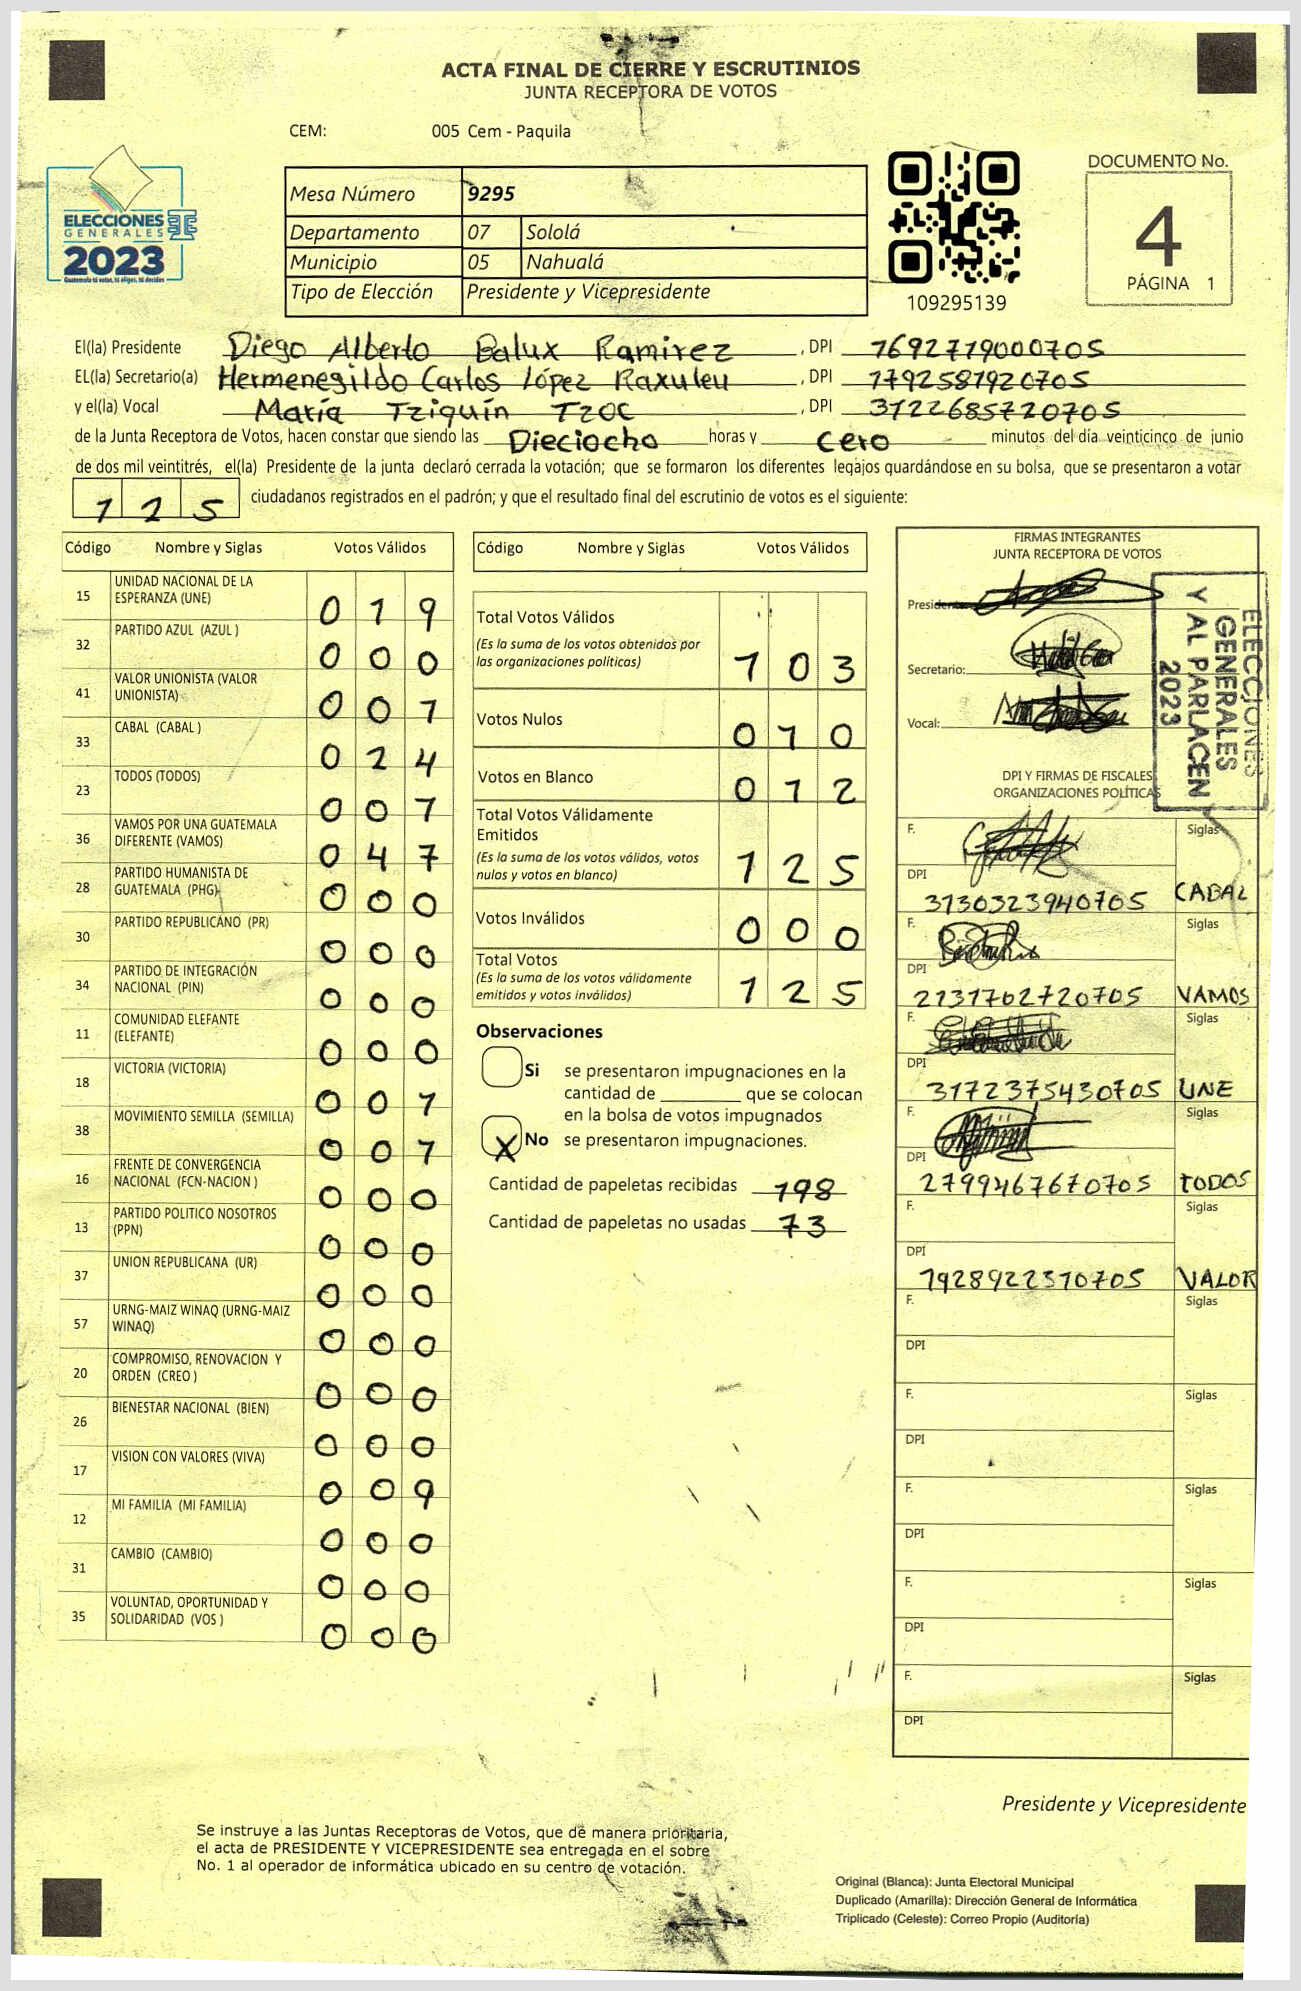 ACTA FINAL DE CIERRE Y ESCRUTINIOS
JUNTA RECEPTORA DE VOTOS
CEM: 005 Cem - Paquila
ELECCIONES
GENERALES
2023
Guatemala tú votas, tú eliges, tú decides
Mesa Número 9295
Departamento 07 Sololá
Municipio 05 Nahualá
Tipo de Elección Presidente y Vicepresidente
109295139
DOCUMENTO No.
4
PÁGINA 1
El(la) Presidente Diego Alberto Balux Ramirez , DPI 1692719000705
EL(la) Secretario(a) Hermenegildo Carlos López Raxuleu , DPI 1792581920705
y el(la) Vocal María Tziquín Tzoc , DPI 3122685720705
de la Junta Receptora de Votos, hacen constar que siendo las Dieciocho horas y Cero minutos del día veinticinco de junio
de dos mil veintitrés, el(la) Presidente de la junta declaró cerrada la votación; que se formaron los diferentes legajos quardándose en su bolsa, que se presentaron a votar
125 ciudadanos registrados en el padrón; y que el resultado final del escrutinio de votos es el siguiente:
Código Nombre y Siglas Votos Válidos
15 UNIDAD NACIONAL DE LA
ESPERANZA (UNE) 019
32 PARTIDO AZUL (AZUL ) 000
41 VALOR UNIONISTA (VALOR
UNIONISTA) 001
33 CABAL (CABAL ) 024
23 TODOS (TODOS) 001
36 VAMOS POR UNA GUATEMALA
DIFERENTE (VAMOS) 047
28 PARTIDO HUMANISTA DE
GUATEMALA (PHG) 000
30 PARTIDO REPUBLICANO (PR) 000
34 PARTIDO DE INTEGRACIÓN
NACIONAL (PIN) 000
11 COMUNIDAD ELEFANTE
(ELEFANTE) 000
18 VICTORIA (VICTORIA) 001
38 MOVIMIENTO SEMILLA (SEMILLA) 001
16 FRENTE DE CONVERGENCIA
NACIONAL (FCN-NACION ) 000
13 PARTIDO POLITICO NOSOTROS
(PPN) 000
37 UNION REPUBLICANA (UR) 000
57 URNG-MAIZ WINAQ (URNG-MAIZ
WINAQ) 000
20 COMPROMISO, RENOVACION Y
ORDEN (CREO ) 000
26 BIENESTAR NACIONAL (BIEN) 000
17 VISION CON VALORES (VIVA) 009
12 MI FAMILIA (MI FAMILIA) 000
31 CAMBIO (CAMBIO) 000
35 VOLUNTAD, OPORTUNIDAD Y
SOLIDARIDAD (VOS ) 000
Código Nombre y Siglas Votos Válidos
Total Votos Válidos
(Es la suma de los votos obtenidos por
las organizaciones políticas) 103
Votos Nulos 010
Votos en Blanco 012
Total Votos Válidamente
Emitidos
(Es la suma de los votos válidos, votos
nulos y votos en blanco) 125
Votos Inválidos 000
Total Votos
(Es la suma de los votos válidamente
emitidos y votos inválidos) 125
Observaciones
Si se presentaron impugnaciones en la
cantidad de ________ que se colocan
en la bolsa de votos impugnados
X No se presentaron impugnaciones.
Cantidad de papeletas recibidas 198
Cantidad de papeletas no usadas 73
FIRMAS INTEGRANTES
JUNTA RECEPTORA DE VOTOS
Presidente:
Secretario:
Vocal:
ELECCIONES
GENERALES
Y AL PARLACEN
2023
DPI Y FIRMAS DE FISCALES
ORGANIZACIONES POLÍTICAS
F. Siglas
DPI 3130323940705 CABAL
F. Siglas
DPI 2131702720705 VAMOS
F. Siglas
DPI 3172375430705 UNE
F. Siglas
DPI 2799467670705 TODOS
F. Siglas
DPI 1928922310705 VALOR
F. Siglas
DPI
F. Siglas
DPI
F. Siglas
DPI
F. Siglas
DPI
F. Siglas
DPI
Presidente y Vicepresidente
Se instruye a las Juntas Receptoras de Votos, que de manera prioritaria,
el acta de PRESIDENTE Y VICEPRESIDENTE sea entregada en el sobre
No. 1 al operador de informática ubicado en su centro de votación.
Original (Blanca): Junta Electoral Municipal
Duplicado (Amarilla): Dirección General de Informática
Triplicado (Celeste): Correo Propio (Auditoría)